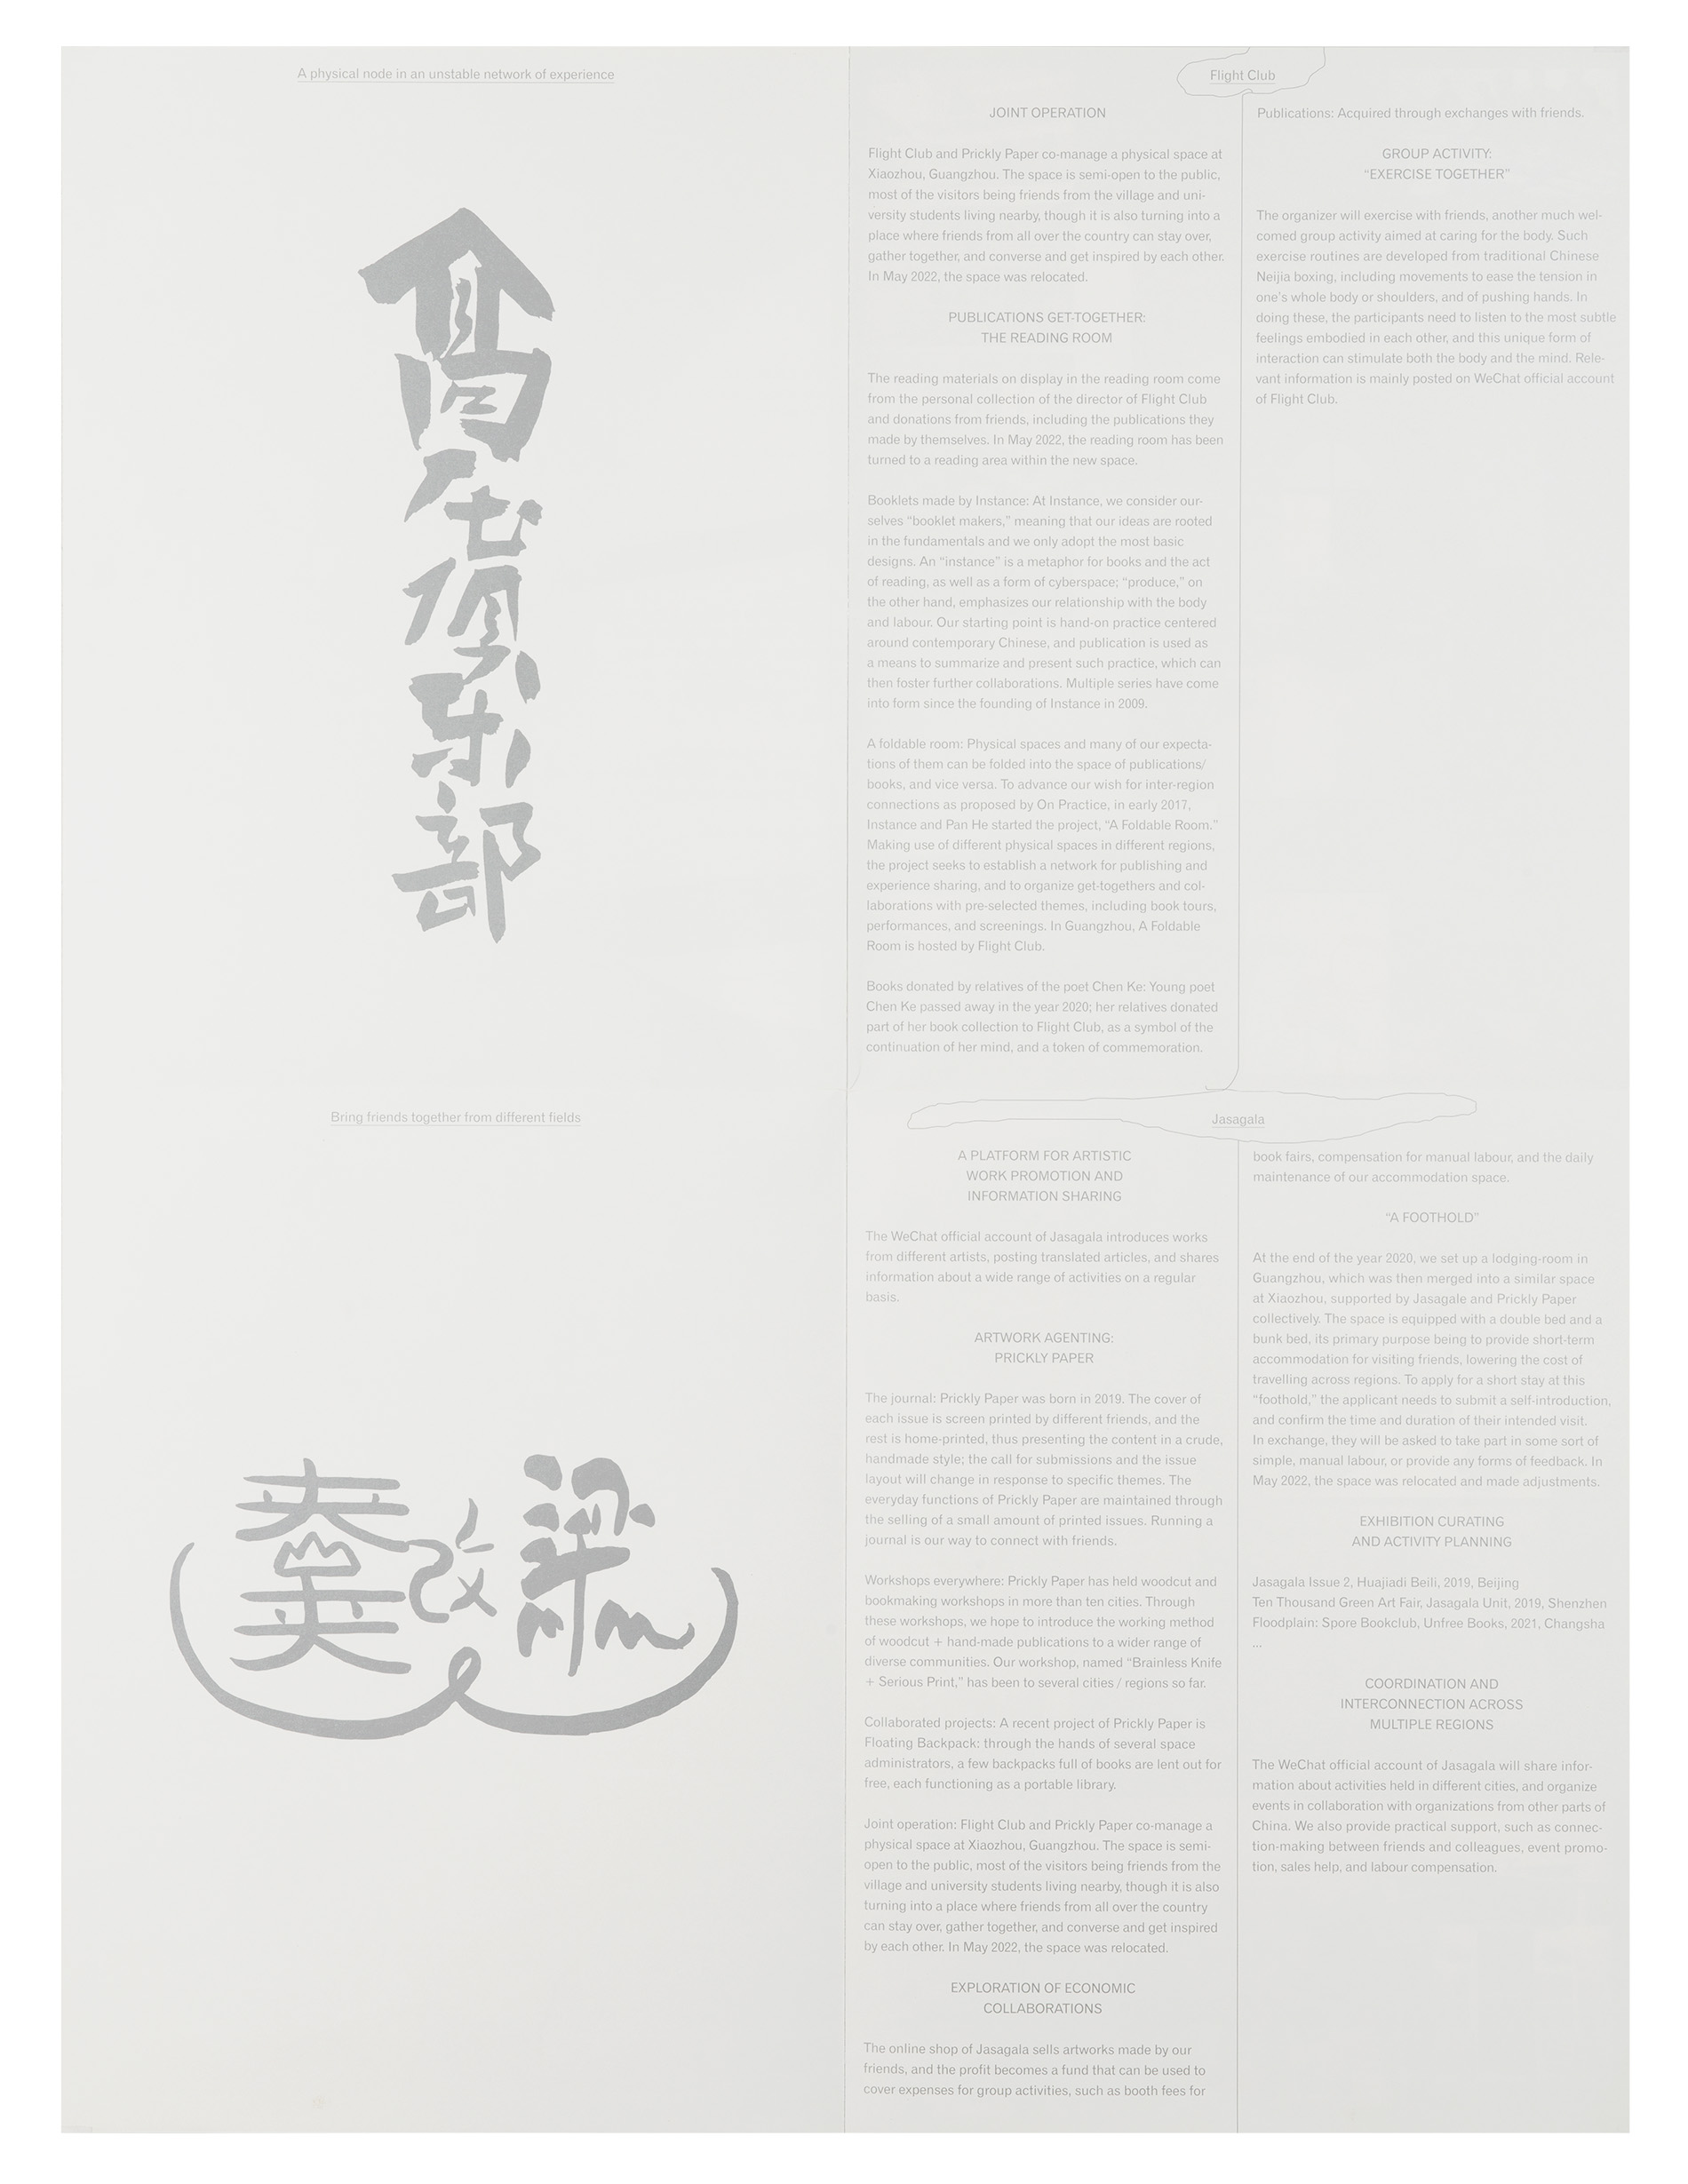 A physical node in an unstable network of experience
Flight Club
JOINT OPERATION
Flight Club and Prickly Paper co-manage a physical space at
Xiaozhou, Guangzhou. The space is semi-open to the public,
most of the visitors being friends from the village and uni-
versity students living nearby, though it is also turning into a
place where friends from all over the country can stay over,
gather together, and converse and get inspired by each other.
In May 2022, the space was relocated.
PUBLICATIONS GET-TOGETHER:
THE READING ROOM
The reading materials on display in the reading room come
from the personal collection of the director of Flight Club
and donations from friends, including the publications they
made by themselves. In May 2022, the reading room has been
turned to a reading area within the new space.
Booklets made by Instance: At Instance, we consider our-
selves “booklet makers,” meaning that our ideas are rooted
in the fundamentals and we only adopt the most basic
designs. An “instance” is a metaphor for books and the act
of reading, as well as a form of cyberspace; “produce,” on
the other hand, emphasizes our relationship with the body
and labour. Our starting point is hand-on practice centered
around contemporary Chinese, and publication is used as
a means to summarize and present such practice, which can
then foster further collaborations. Multiple series have come
into form since the founding of Instance in 2009.
A foldable room: Physical spaces and many of our expecta-
tions of them can be folded into the space of publications/
books, and vice versa. To advance our wish for inter-region
connections as proposed by On Practice, in early 2017,
Instance and Pan He started the project, “A Foldable Room.”
Making use of different physical spaces in different regions,
the project seeks to establish a network for publishing and
experience sharing, and to organize get-togethers and col-
laborations with pre-selected themes, including book tours,
performances, and screenings. In Guangzhou, A Foldable
Room is hosted by Flight Club.
Books donated by relatives of the poet Chen Ke: Young poet
Chen Ke passed away in the year 2020; her relatives donated
part of her book collection to Flight Club, as a symbol of the
continuation of her mind, and a token of commemoration.
Publications: Acquired through exchanges with friends.
GROUP ACTIVITY:
“EXERCISE TOGETHER”
The organizer will exercise with friends, another much wel-
comed group activity aimed at caring for the body. Such
exercise routines are developed from traditional Chinese
Neijia boxing, including movements to ease the tension in
one’s whole body or shoulders, and of pushing hands. In
doing these, the participants need to listen to the most subtle
feelings embodied in each other, and this unique form of
interaction can stimulate both the body and the mind. Rele-
vant information is mainly posted on WeChat official account
of Flight Club.
Bring friends together from different fields
Jasagala
A PLATFORM FOR ARTISTIC
WORK PROMOTION AND
INFORMATION SHARING
The WeChat official account of Jasagala introduces works
from different artists, posting translated articles, and shares
information about a wide range of activities on a regular
basis.
ARTWORK AGENTING:
PRICKLY PAPER
The journal: Prickly Paper was born in 2019. The cover of
each issue is screen printed by different friends, and the
rest is home-printed, thus presenting the content in a crude,
handmade style; the call for submissions and the issue
layout will change in response to specific themes. The
everyday functions of Prickly Paper are maintained through
the selling of a small amount of printed issues. Running a
journal is our way to connect with friends.
Workshops everywhere: Prickly Paper has held woodcut and
bookmaking workshops in more than ten cities. Through
these workshops, we hope to introduce the working method
of woodcut + hand-made publications to a wider range of
diverse communities. Our workshop, named “Brainless Knife
+ Serious Print,” has been to several cities / regions so far.
Collaborated projects: A recent project of Prickly Paper is
Floating Backpack: through the hands of several space
administrators, a few backpacks full of books are lent out for
free, each functioning as a portable library.
Joint operation: Flight Club and Prickly Paper co-manage a
physical space at Xiaozhou, Guangzhou. The space is semi-
open to the public, most of the visitors being friends from the
village and university students living nearby, though it is also
turning into a place where friends from all over the country
can stay over, gather together, and converse and get inspired
by each other. In May 2022, the space was relocated.
EXPLORATION OF ECONOMIC
COLLABORATIONS
The online shop of Jasagala sells artworks made by our
friends, and the profit becomes a fund that can be used to
cover expenses for group activities, such as booth fees for
book fairs, compensation for manual labour, and the daily
maintenance of our accommodation space.
“A FOOTHOLD”
At the end of the year 2020, we set up a lodging-room in
Guangzhou, which was then merged into a similar space
at Xiaozhou, supported by Jasagale and Prickly Paper
collectively. The space is equipped with a double bed and a
bunk bed, its primary purpose being to provide short-term
accommodation for visiting friends, lowering the cost of
travelling across regions. To apply for a short stay at this
“foothold,” the applicant needs to submit a self-introduction,
and confirm the time and duration of their intended visit.
In exchange, they will be asked to take part in some sort of
simple, manual labour, or provide any forms of feedback. In
May 2022, the space was relocated and made adjustments.
EXHIBITION CURATING
AND ACTIVITY PLANNING
Jasagala Issue 2, Huajiadi Beili, 2019, Beijing
Ten Thousand Green Art Fair, Jasagala Unit, 2019, Shenzhen
Floodplain: Spore Bookclub, Unfree Books, 2021, Changsha
...
COORDINATION AND
INTERCONNECTION ACROSS
MULTIPLE REGIONS
The WeChat official account of Jasagala will share infor-
mation about activities held in different cities, and organize
events in collaboration with organizations from other parts of
China. We also provide practical support, such as connec-
tion-making between friends and colleagues, event promo-
tion, sales help, and labour compensation.